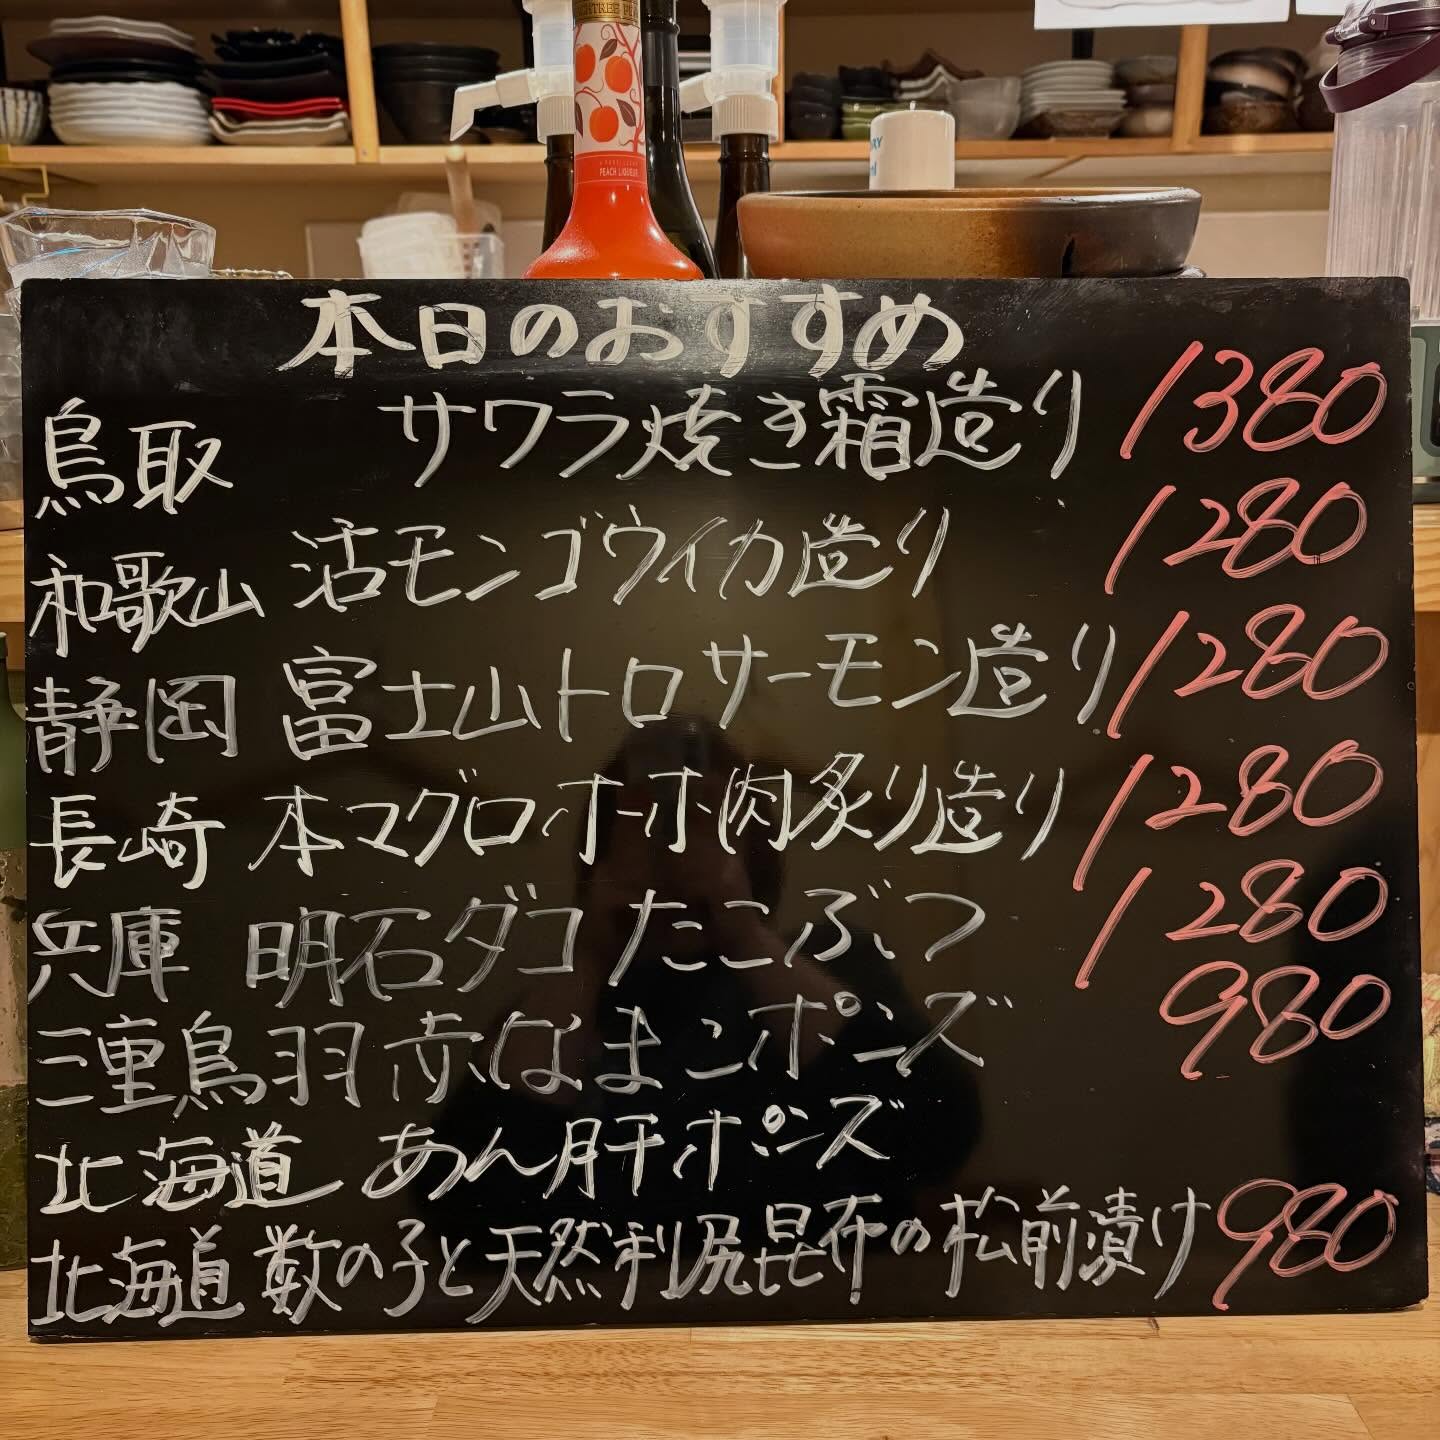 PEACH LIQUEUR
本日のおすすめ
鳥取 サワラ焼き霜造り 1380
和歌山 活モンゴウイカ造り 1280
静岡 富士山トロサーモン造り 1280
長崎 本マグロホホ肉炙り造り 1280
兵庫 明石ダコたこぶつ 1280
三重鳥羽赤なまこポンズ 980
北海道 あん肝ポンズ
北海道 数の子と天然利尻昆布の松前漬け 980